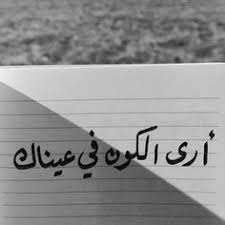 أرى الكون في عيناك